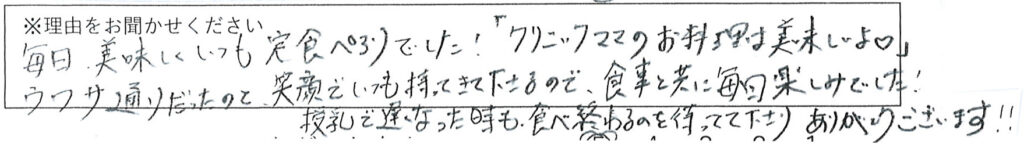 ※理由をお聞かせください
毎日、美味しくいつも完食ペろりでした!「クリニックママのお料理は美味しいよ♡」
ウワサ通りだったのと、笑顔でいつも持ってきて下さるので、食事と共に毎日楽しみでした!
授乳で遅くなった時も、食べ終わるのを待ってて下さり ありがとうございます!!